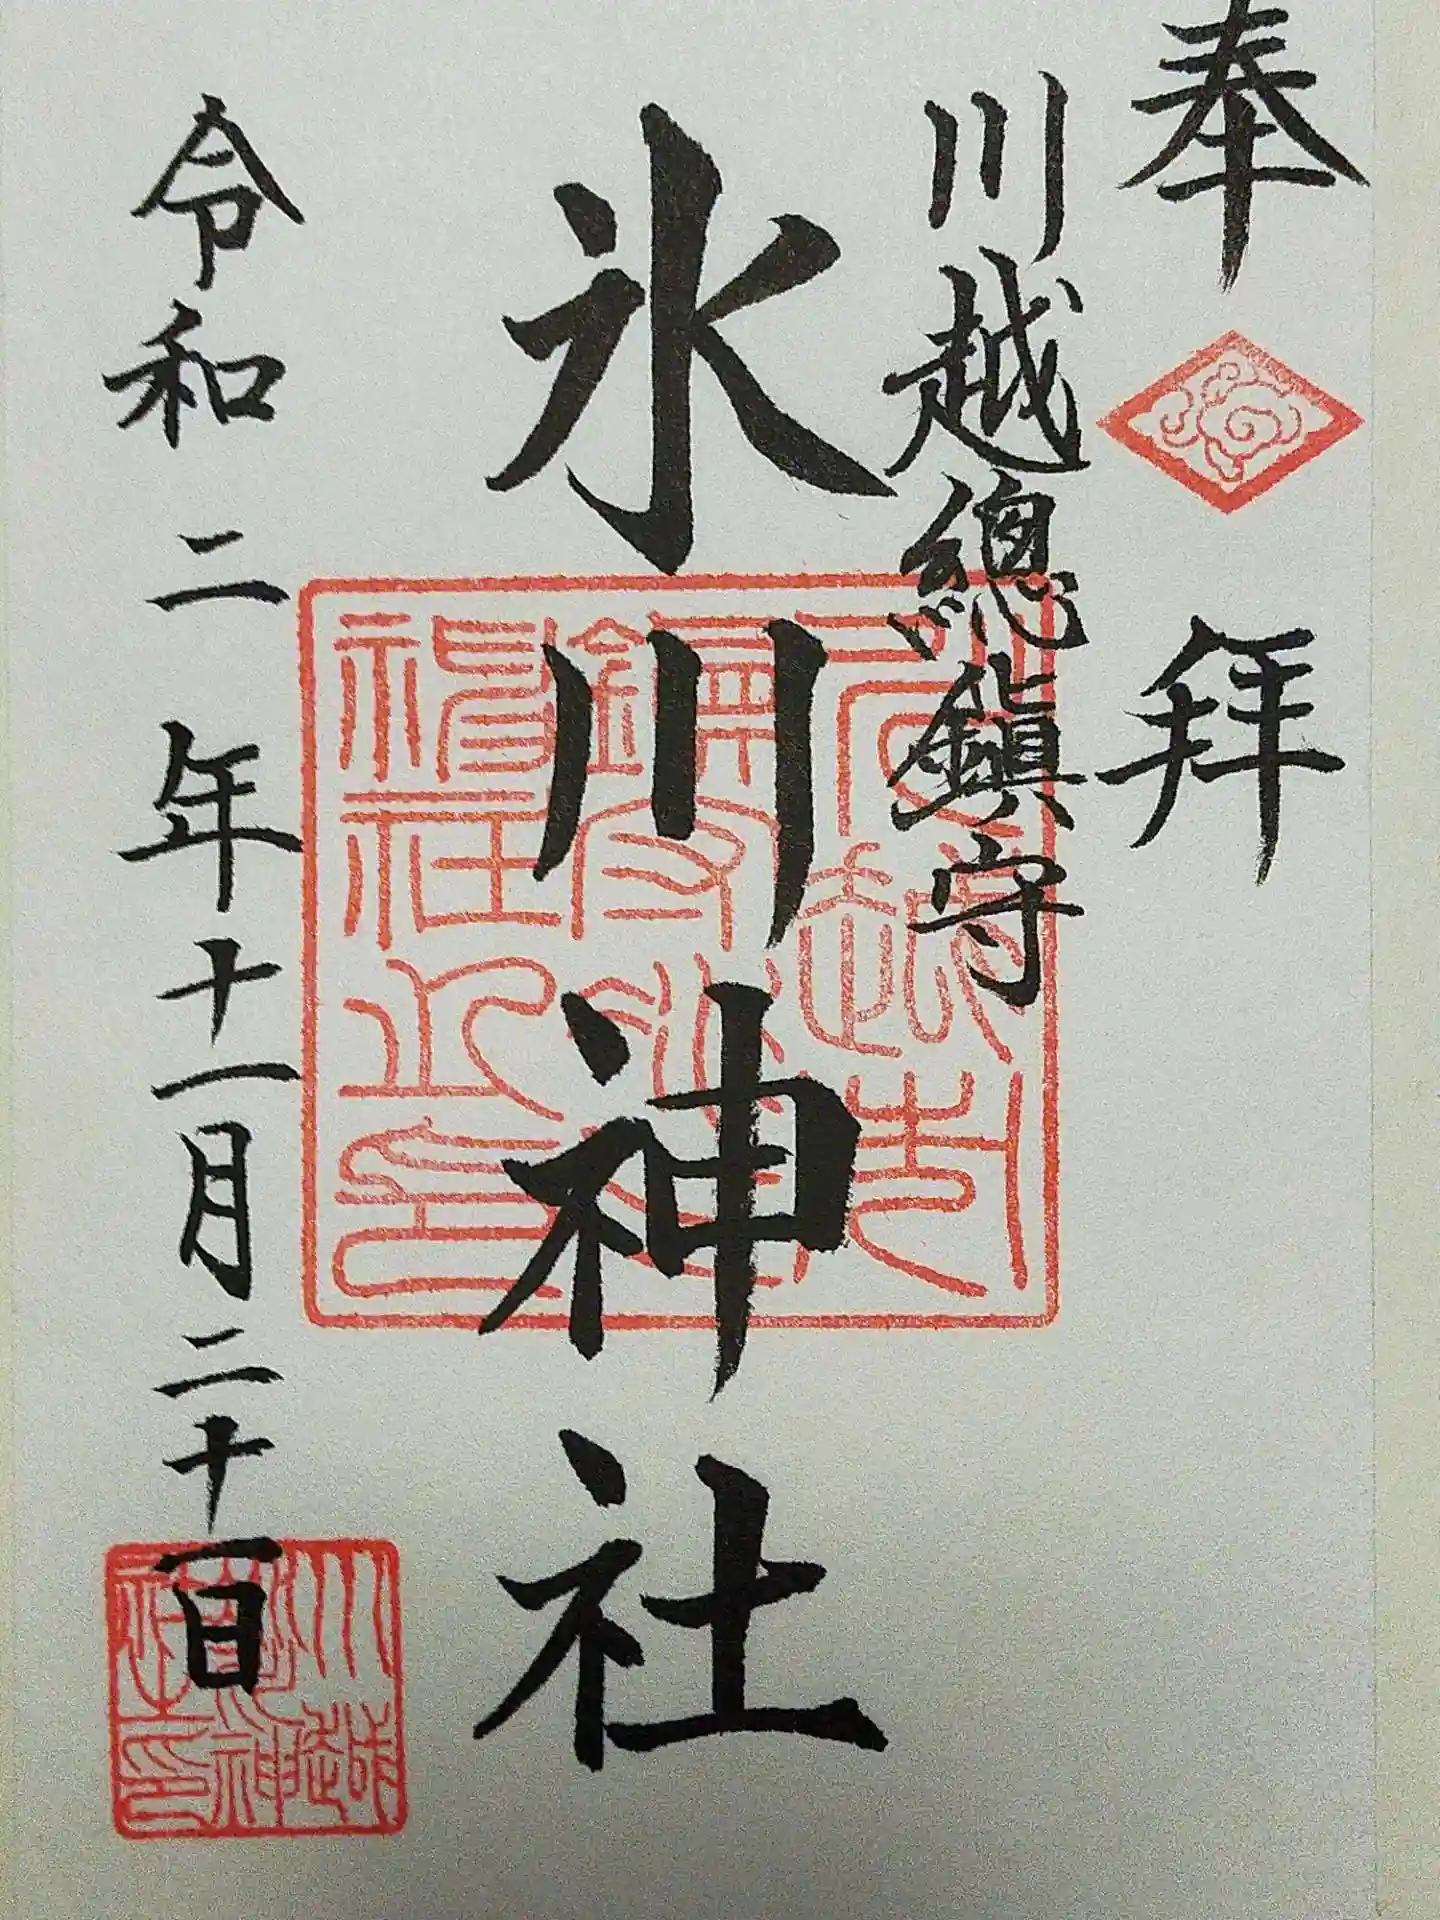 奉拜
川越總鎮守
氷川神社
令和二年十一月二十一日